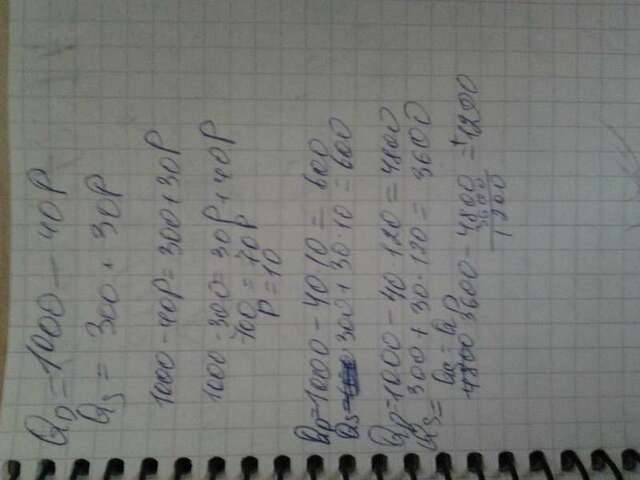 QD=1000-40P
QS = 300+30P
1000-40P=300+30P
1000-300=30P+40P
700=70P
P=10
QD=1000-40·10=600
QS=300+30·10=600
QD=1000-40·120=4800
QS=300+30·120=3600
3600-4800=
4800
3600
1200